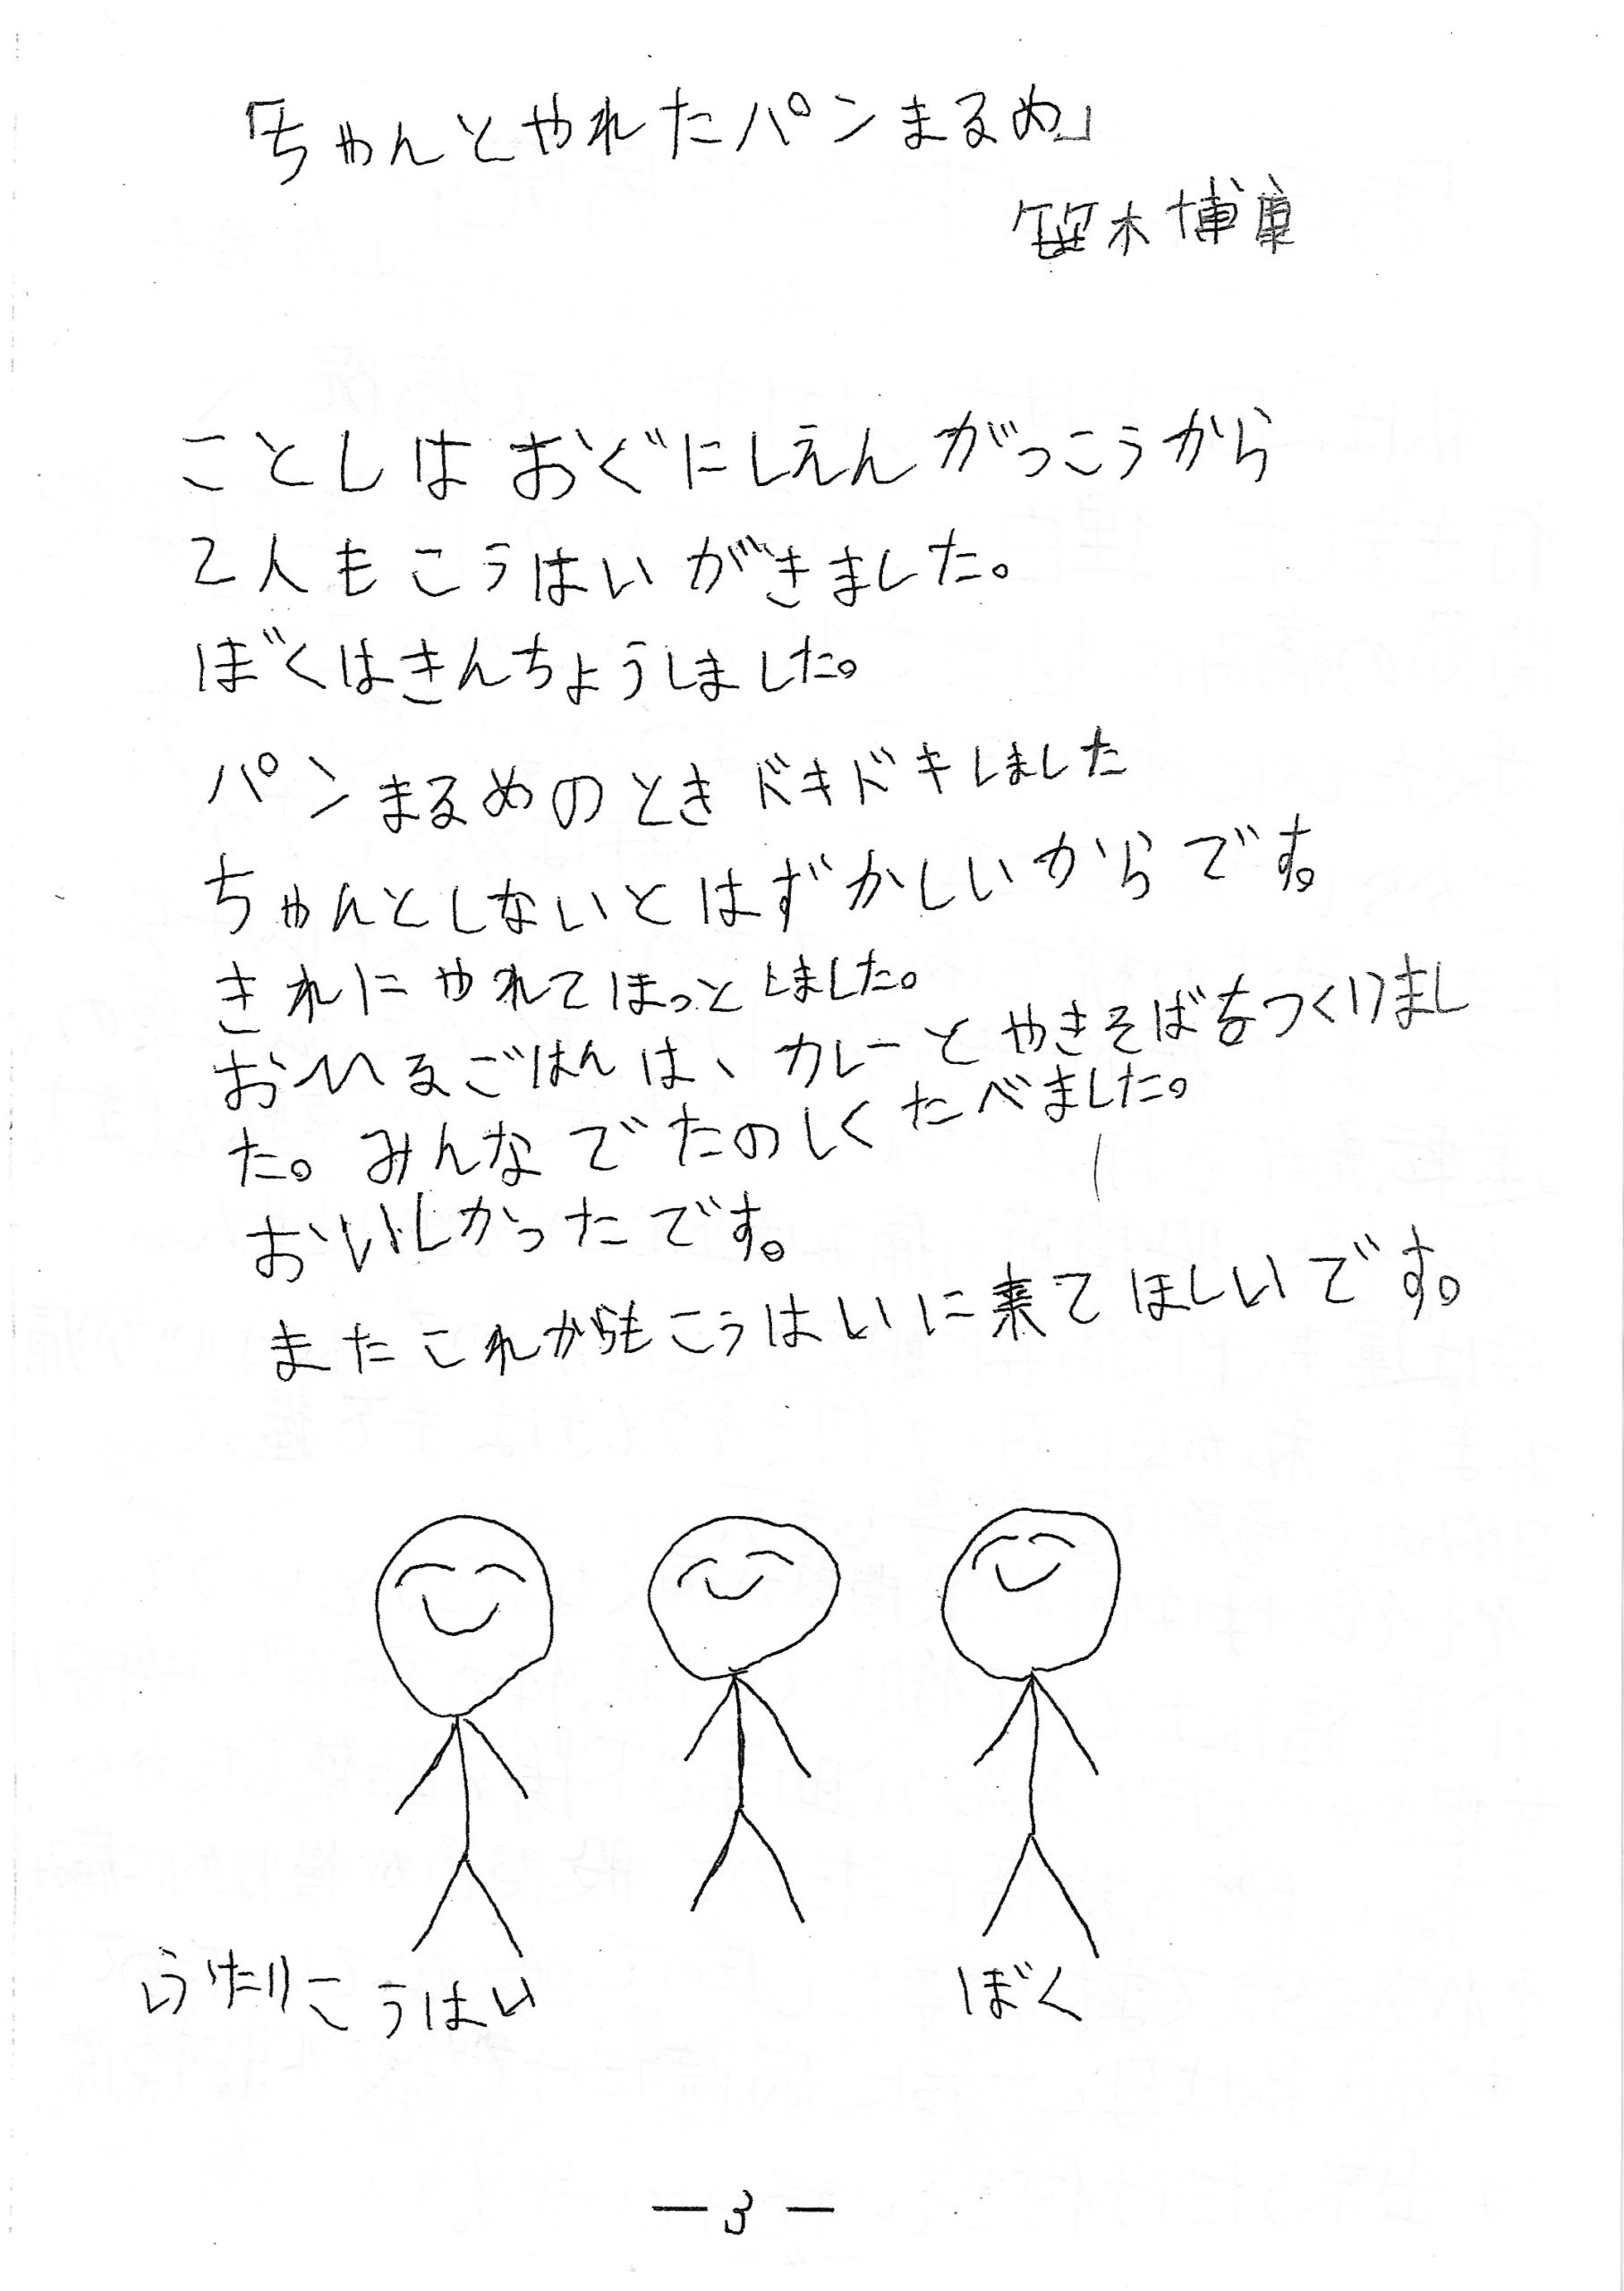 「ちゃんとやれたパンまるめ」
笹木博
ことしはおぐにしえんがっこうから
2人もこうはいがきました。
ぼくはきんちょうしました。
パンまるめのときドキドキしました
ちゃんとしないとはずかしいからです。
きれにやれてほっとしました。
おひるごはんは、カレーとやきそばをつくりまし
た。みんなでたのしくたべました。
おいしかったです。
またこれからもこうはいに来てほしいです。
ふたりこうはい
ぼく
ー3ー